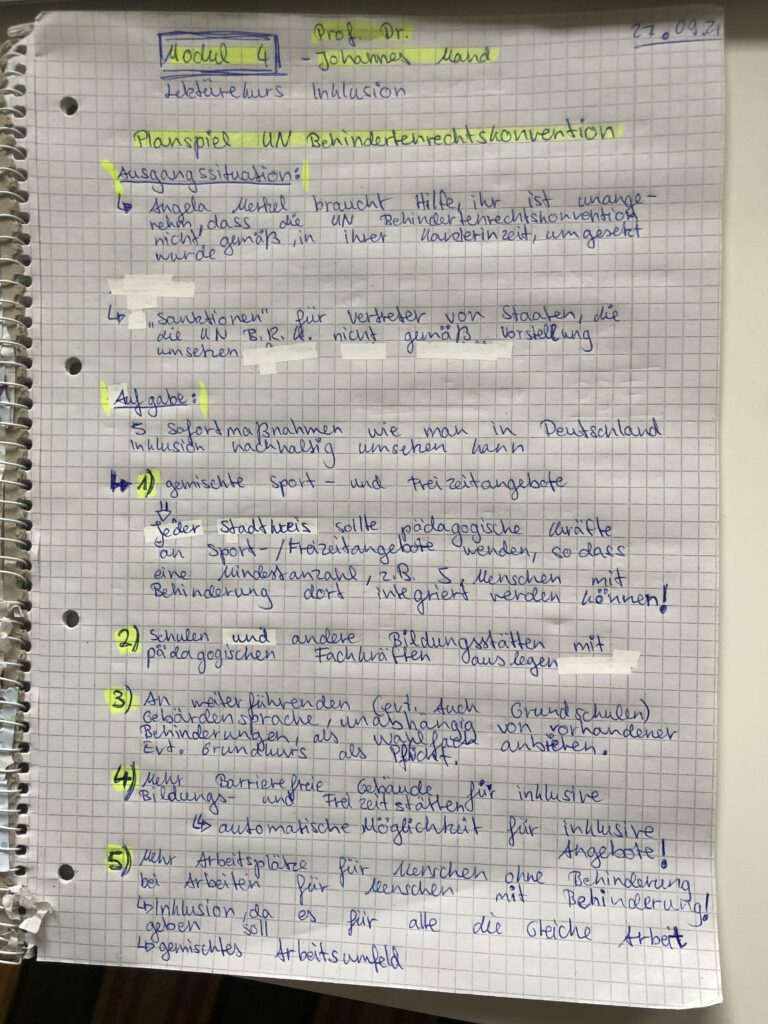 Prof. Dr.
27.09.21
Modul 4 - Johannes Mand
Lektürekurs Inklusion
Planspiel UN Behindertenrechtskonvention
Ausgangssituation:
↳ Angela Merkel braucht Hilfe, ihr ist unange-
nehm, dass die UN Behindertenrechtskonvention
nicht gemäß, in ihrer Kanzlerinzeit, umgesetzt
wurde
↳ „Sanktionen" für Vertreter von Staaten, die
die UN B.R.K. nicht gemäß Vorstellung
umsetzen
Aufgabe:
5 Sofortmaßnahmen wie man in Deutschland
Inklusion nachhaltig umsetzen kann
↳ 1) gemischte Sport- und Freizeitangebote
⇓
jeder Stadtkreis sollte pädagogische Kräfte
an Sport-/Freizeitangebote wenden, so dass
eine Mindestanzahl, z.B. 5, Menschen mit
Behinderung dort integriert werden können!
2) Schulen und andere Bildungsstätten mit
pädagogischen Fachkräften auslegen
3) An weiterführenden (evt. Auch Grundschulen)
Gebärdensprache, unabhängig von vorhandener
Behinderungen, als Wahlfach anbieten.
Evt. Grundkurs als Pflicht.
4) Mehr Barrierefreie Gebäude für inklusive
Bildungs- und Freizeitstätten
↳ automatische Möglichkeit für inklusive
Angebote!
5) Mehr Arbeitsplätze für Menschen ohne Behinderung
bei Arbeiten für Menschen mit Behinderung!
↳ Inklusion, da es für alle die Gleiche Arbeit
geben soll
↳ gemischtes Arbeitsumfeld